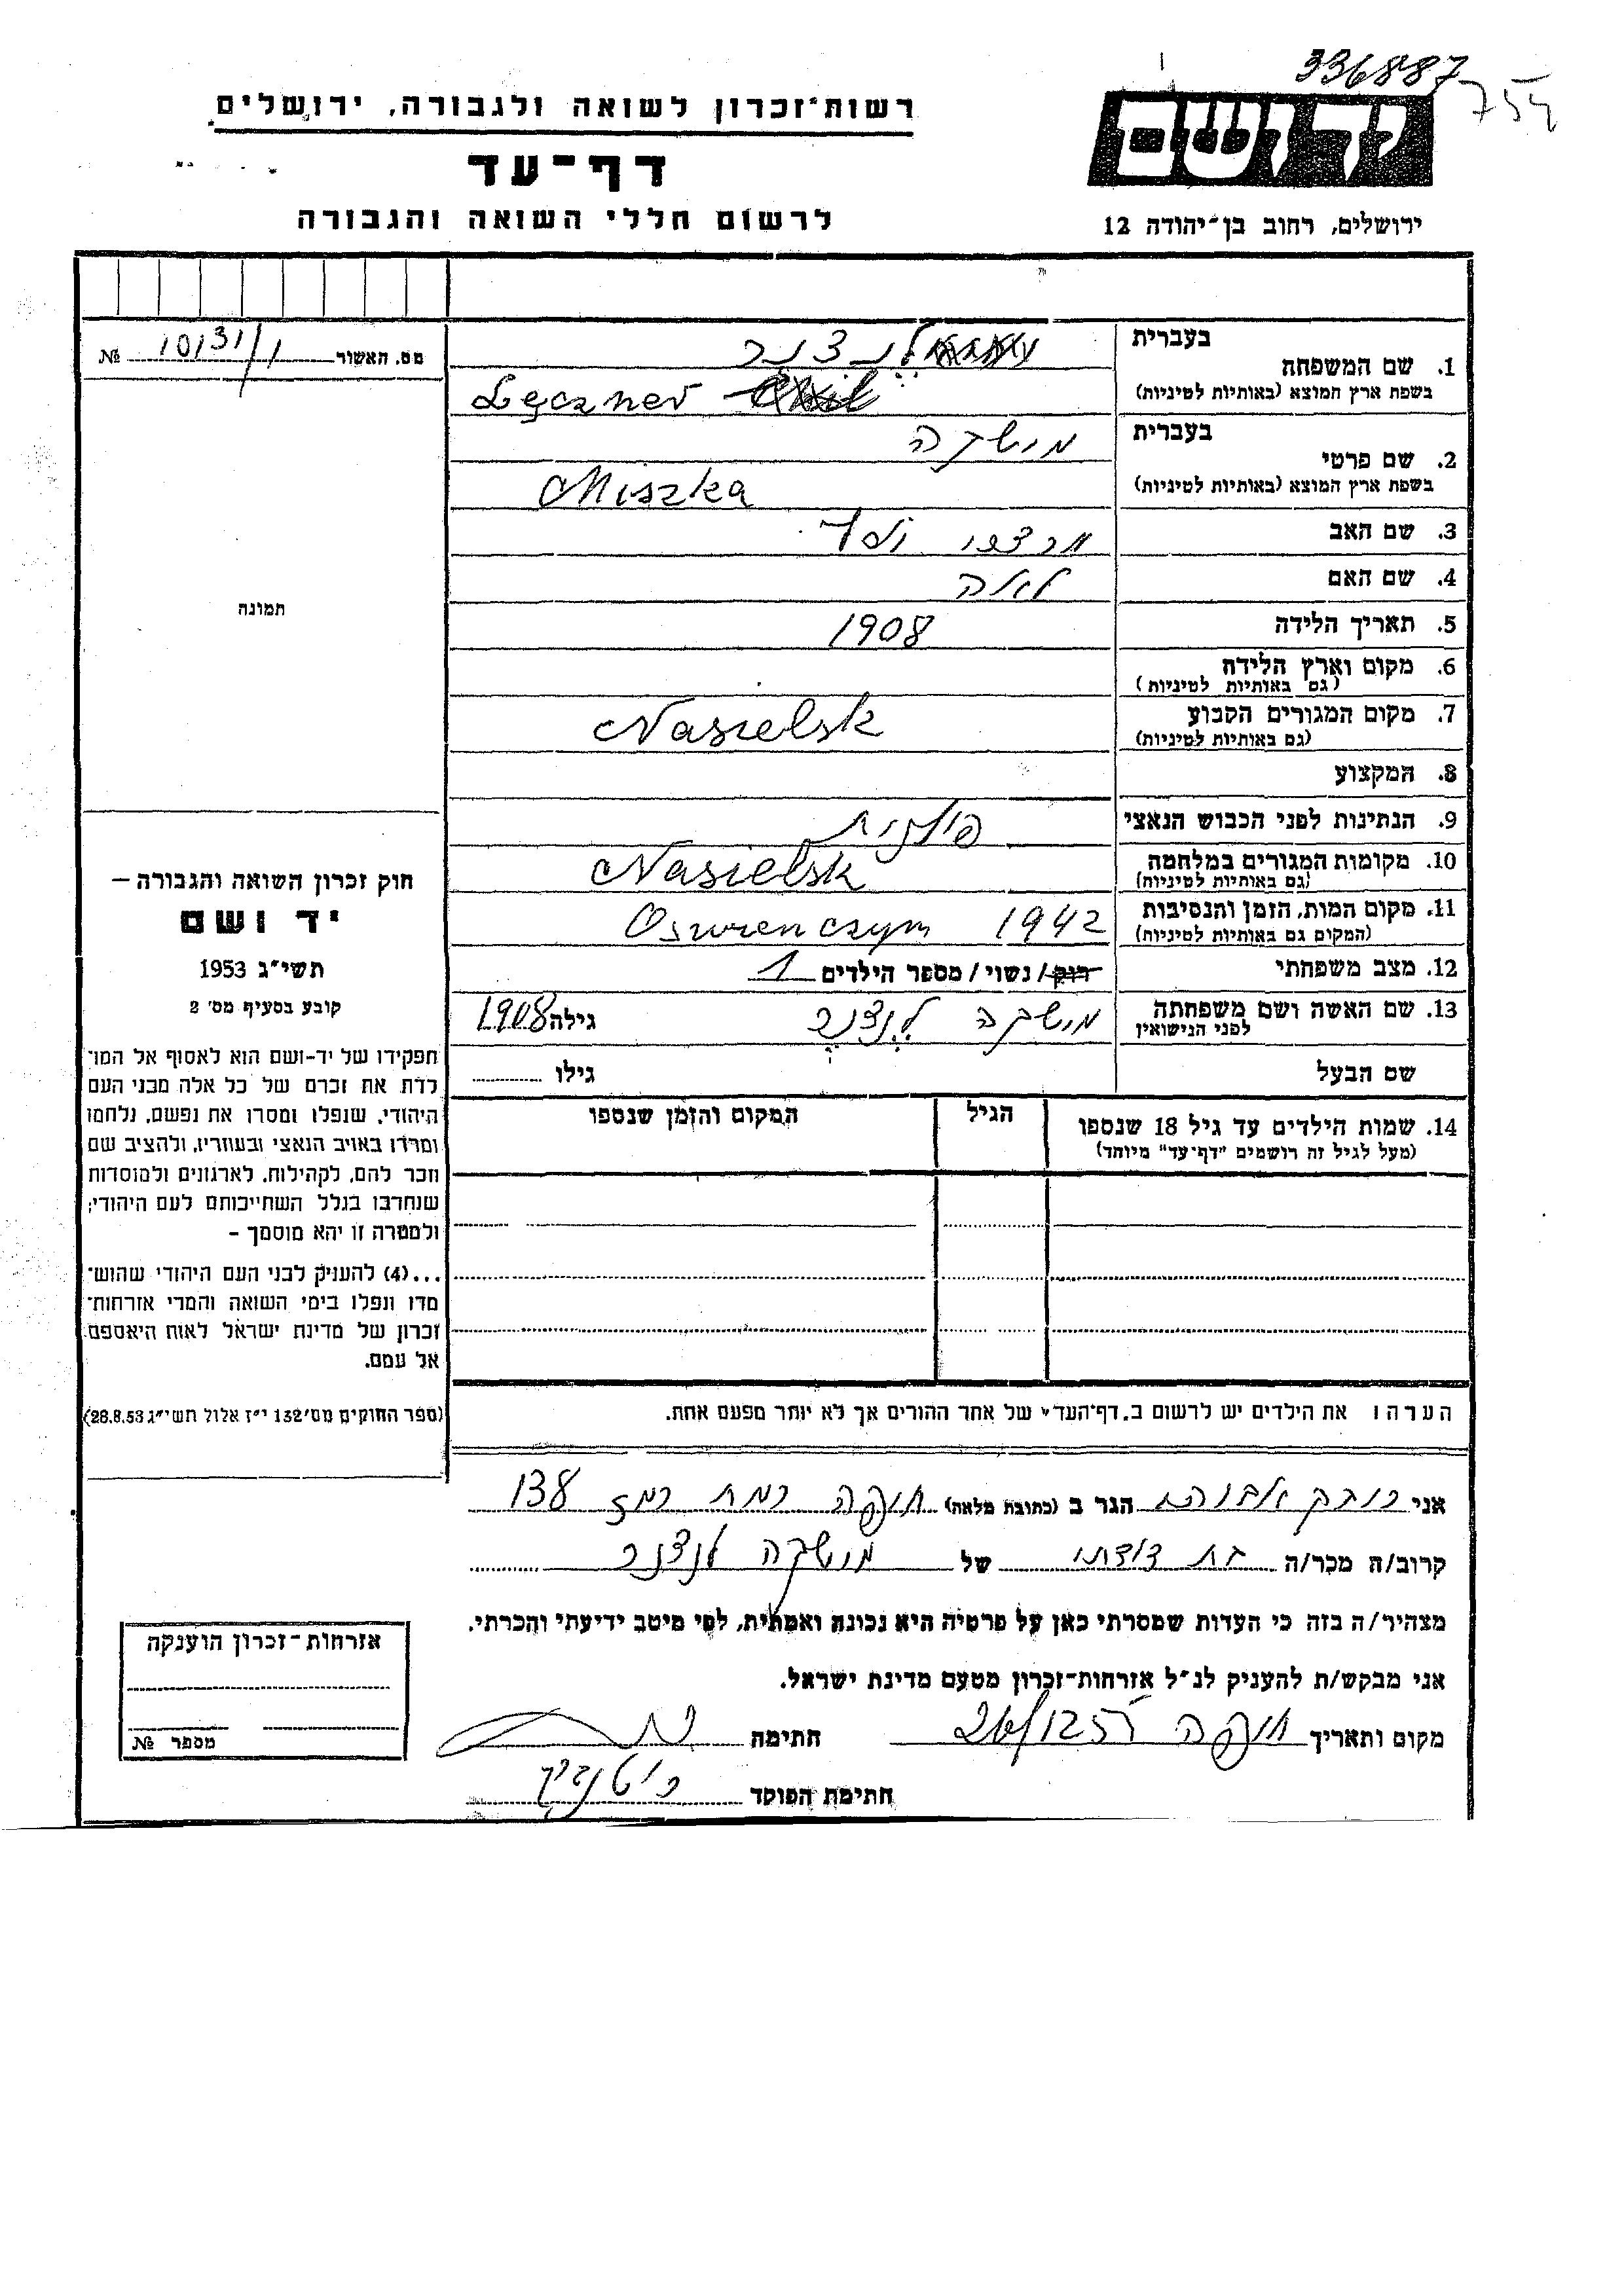 336887
754
רשות־זכרון לשואה ולגבורה, ירושלים
יד ושם
דף־עד
לרשום חללי השואה והגבורה
ירושלים, רחוב בן־יהודה 12
מס. האשור 10131/1 №
תמונה
1. שם המשפחה
בעברית לנצנר
בשפת ארץ המוצא (באותיות לטיניות) Lęczner
2. שם פרטי
בעברית מישקה
בשפת ארץ המוצא (באותיות לטיניות) Miszka
3. שם האב
4. שם האם
5. תאריך הלידה 1908
6. מקום וארץ הלידה
(גם באותיות לטיניות)
7. מקום המגורים הקבוע Nasielsk
(גם באותיות לטיניות)
8. המקצוע
9. הנתינות לפני הכבוש הנאצי פולנית
10. מקומות המגורים במלחמה Nasielsk
(גם באותיות לטיניות)
11. מקום המות, הזמן והנסיבות Oswienczym 1942
(המקום גם באותיות לטיניות)
12. מצב משפחתי רוק/ נשוי/ מספר הילדים 1
13. שם האשה ושם משפחתה מישקה לנצנר גילה 1908
לפני הנישואין
שם הבעל גילו
14. שמות הילדים עד גיל 18 שנספו הגיל המקום והזמן שנספו
(מעל לגיל זה רושמים "דף־עד" מיוחד)
הערה: את הילדים יש לרשום ב„דף־העד" של אחד ההורים אך לא יותר מפעם אחת.
חוק זכרון השואה והגבורה –
יד ושם
תשי״ג 1953
קובע בסעיף מס׳ 2
תפקידו של יד-ושם הוא לאסוף אל המו־
לדת את זכרם של כל אלה מבני העם
היהודי, שנפלו ומסרו את נפשם, נלחמו
ומרדו באויב הנאצי ובעוזריו, ולהציב שם
וזכר להם, לקהילות, לארגונים ולמוסדות
שנחרבו בגלל השתייכותם לעם היהודי;
ולמטרה זו יהא מוסמך –
...(4) להעניק לבני העם היהודי שהוש־
מדו ונפלו בימי השואה והמרי אזרחות־
זכרון של מדינת ישראל לאות היאספם
אל עמם.
(ספר החוקים מס׳ 132 י״ז אלול תשי״ג 28.8.53)
אני הגר ב (כתובת מלאה) חיפה רמת רמז 138
קרוב/ה מכר/ה בת דודתו של מישקה לנצנר
מצהיר/ה בזה כי העדות שמסרתי כאן על פרטיה היא נכונה ואמתית, לפי מיטב ידיעתי והכרתי.
אני מבקש/ת להעניק לנ״ל אזרחות-זכרון מטעם מדינת ישראל.
מקום ותאריך חיפה חתימה
חתימת הפוקד
אזרחות-זכרון הוענקה
מספר №